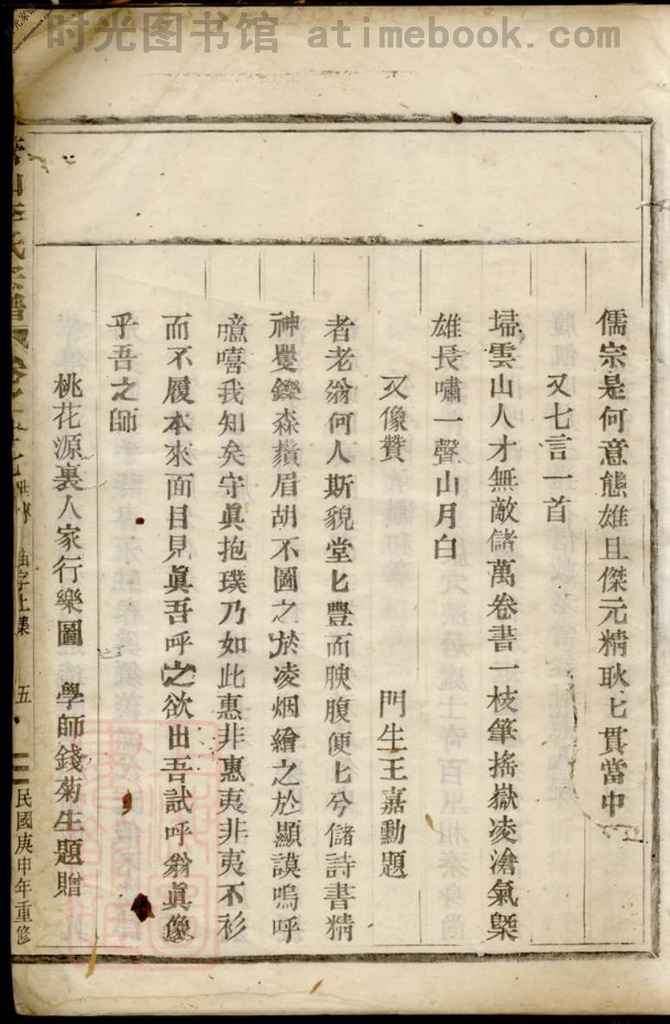 时光图书馆 atimebook.com
儒宗是何意態雄且傑元精耿匕貫當中
又七言一首
埽雲山人才無敵儲萬卷書一枝筆搖嶽凌滄氣槩
雄長嘯一聲山月白
又像贊 門生王嘉勳題
者老翁何人斯貌堂匕豐而腴腹便匕兮儲詩書精
神矍鑠森鬚眉胡不圖之於凌烟繪之於顯謨嗚呼
噫嘻我知矣守眞抱璞乃如此惠非惠夷非夷不衫
而不履本來面目見眞吾呼之欲出吾試呼翁眞像
乎吾之師
桃花源裏人家行樂圖 學師錢菊生題贈
山李氏宗譜 卷之 五
民國庚申年重修